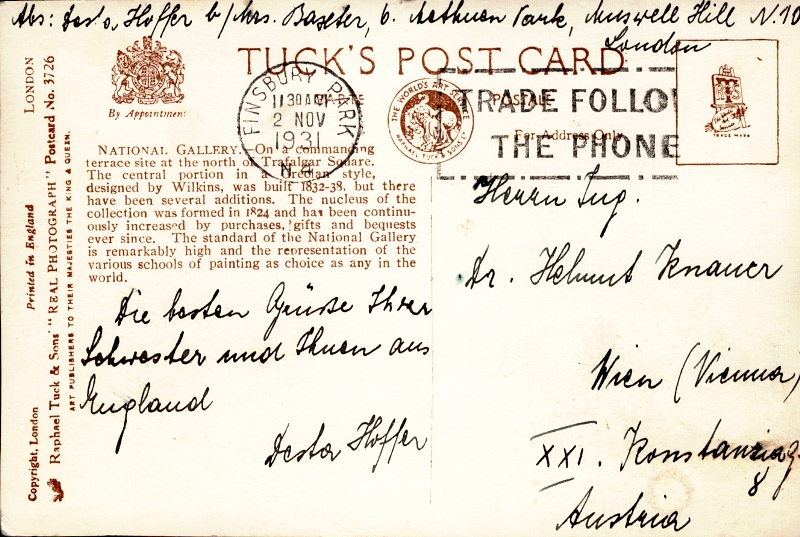 Abs: Desta Hoffer b/Mrs. Baseter, 6. Methuen Park, Muswell Hill N.10
London
TUCK'S POST CARD
By Appointment
FINSBURY PARK
11 30 AM
2 NOV
1931
N.4
CARTE POSTALE
THE WORLD'S ART SERVICE
RAPHAEL TUCK & SONS LTD
TRADE FOLLO
THE PHONE
For Address Only
TRADE MARK
NATIONAL GALLERY. On a commanding
terrace site at the north of Trafalgar Square.
The central portion in a Grecian style,
designed by Wilkins, was built 1832-38, but there
have been several additions. The nucleus of the
collection was formed in 1824 and has been continu-
ously increased by purchases, gifts and bequests
ever since. The standard of the National Gallery
is remarkably high and the representation of the
various schools of painting as choice as any in the
world.
Die besten Grüsse Ihrer
Schwester und Ihnen aus
England
Desta Hoffer
Herrn Ing.
Dr. Helmut Knauer
Wien (Vienna)
XXI. Konstanziag.
8
Austria
LONDON
Printed in England
Copyright, London
Raphael Tuck & Sons' "REAL PHOTOGRAPH" Postcard No. 3726
ART PUBLISHERS TO THEIR MAJESTIES THE KING & QUEEN.